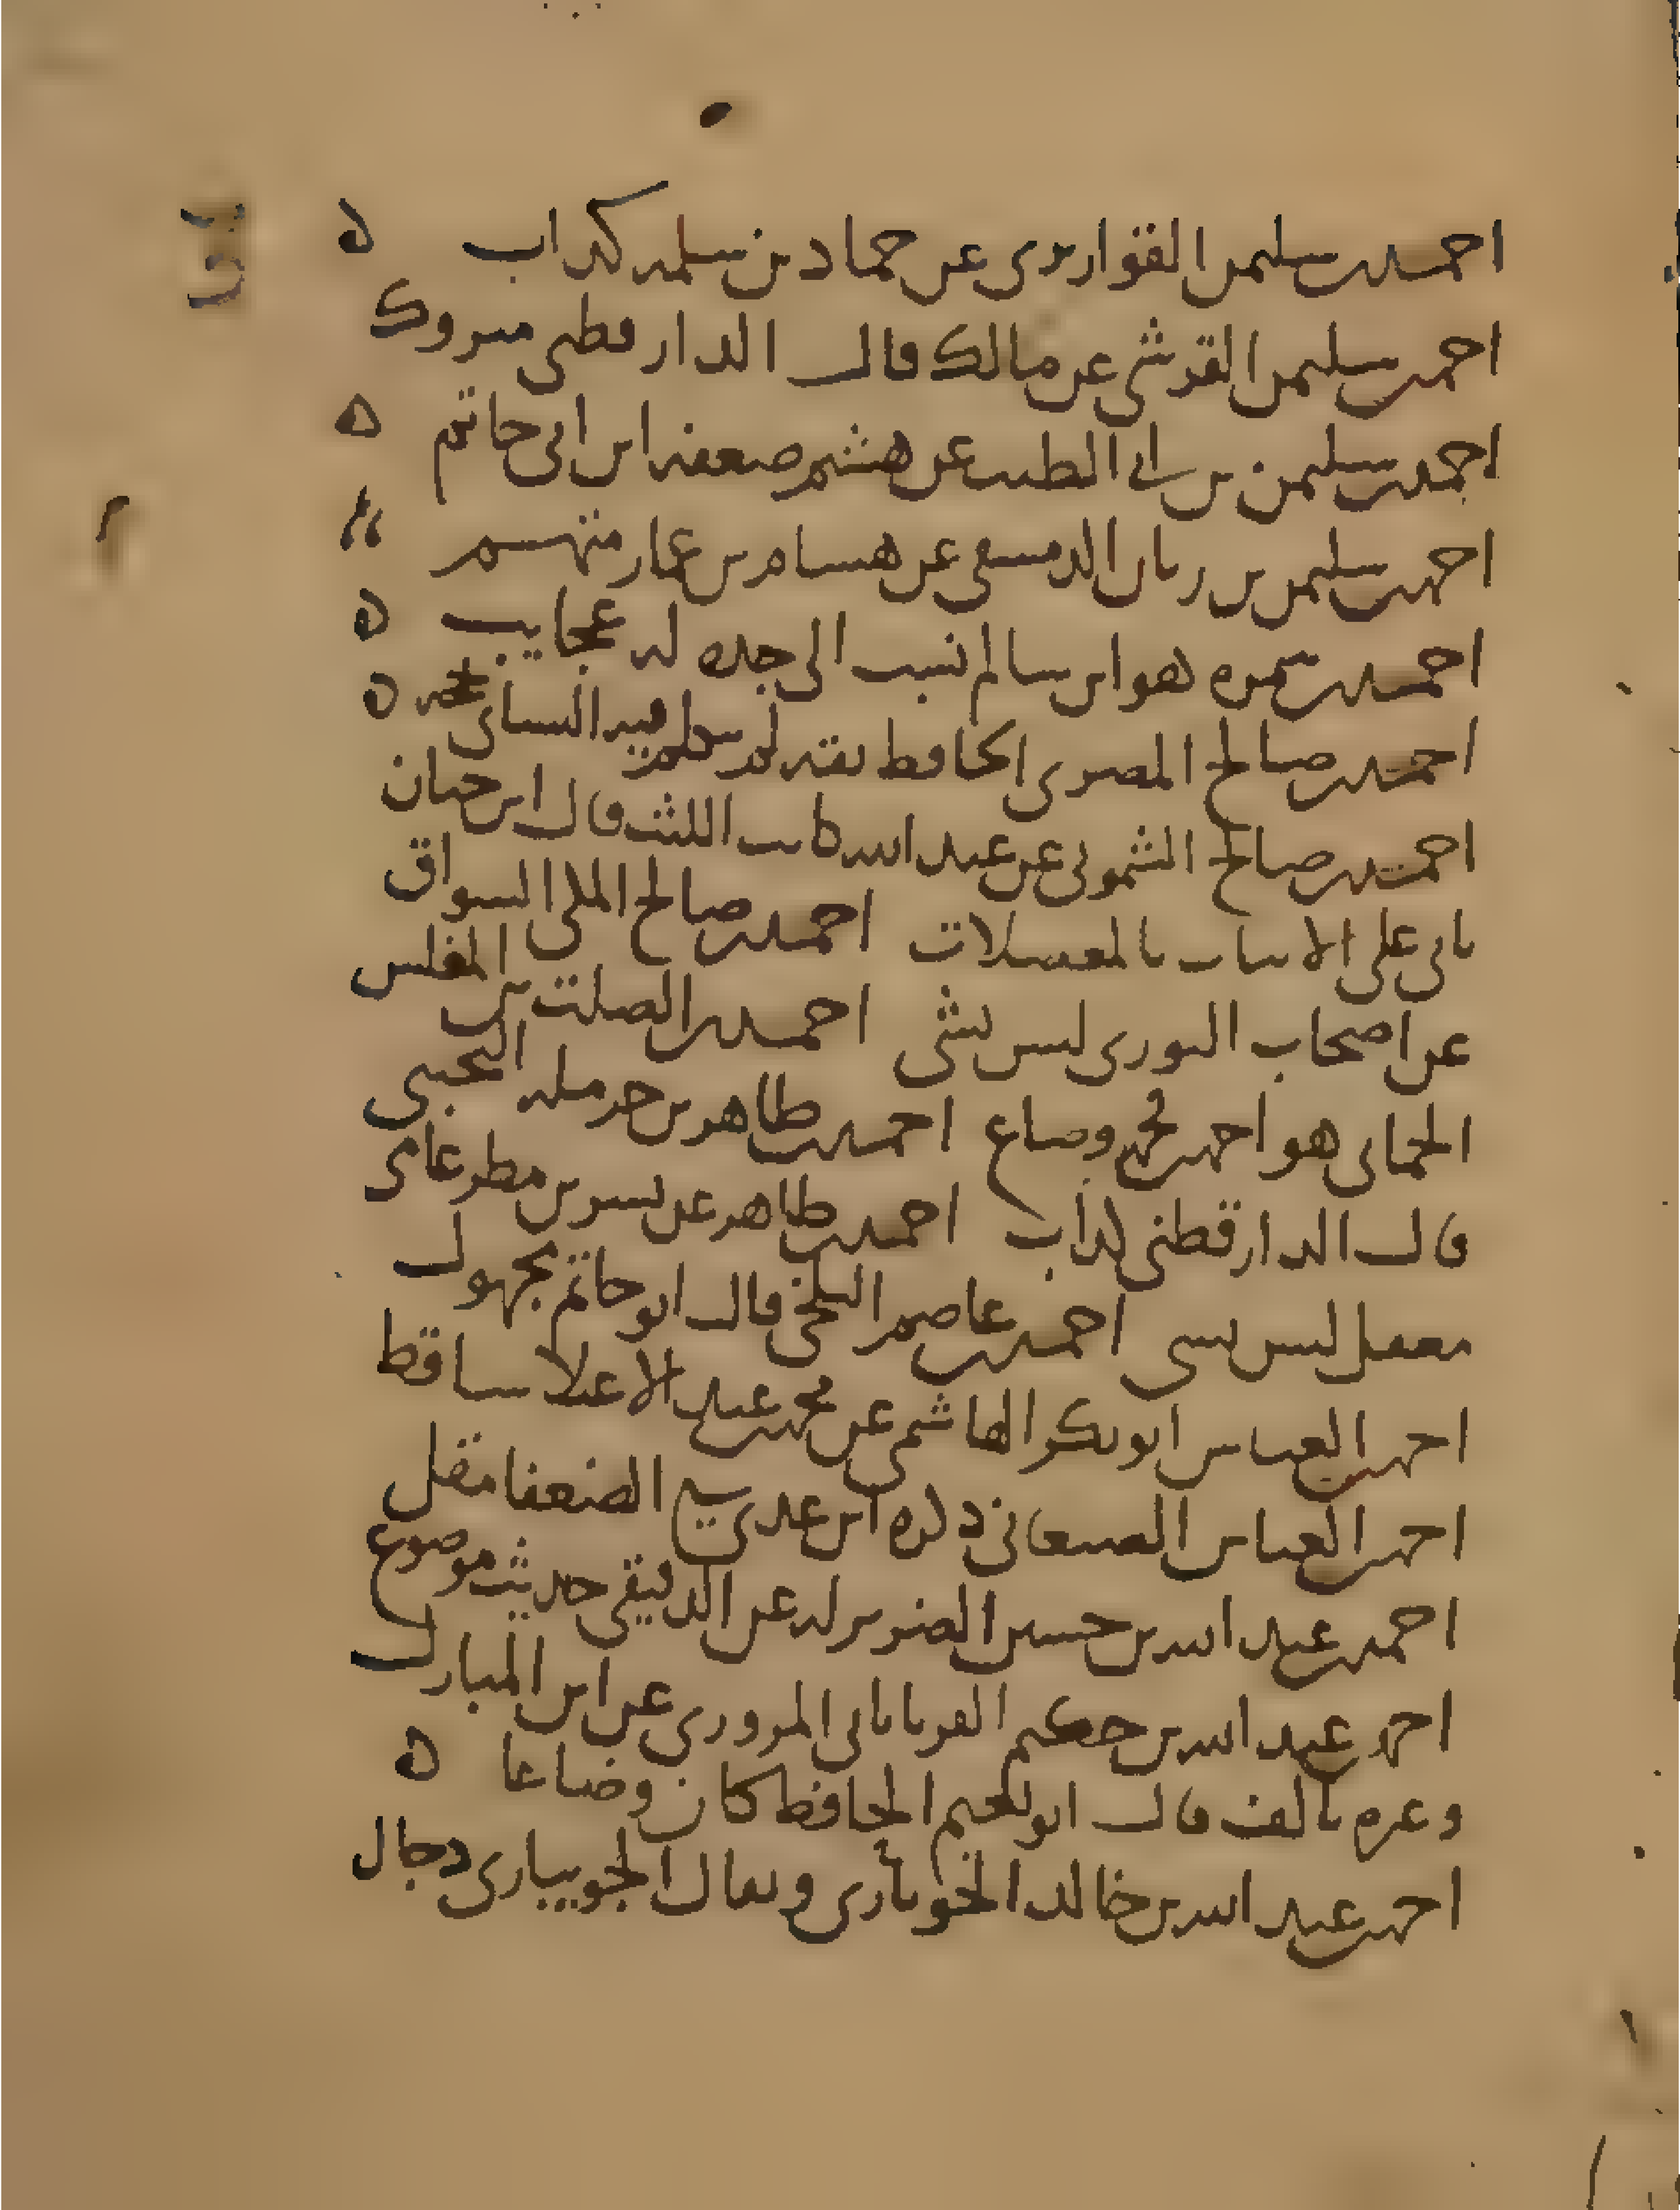 احمد بن سليمن القواريرى عن حماد بن سلمه كداب ه
احمد بن سليمن القرشى عن مالك قال الدارقطنى متروك
احمد بن سليمن بن ابى الطيب عن هشيم ضعفه ابن ابى حاتم ه
احمد بن سليمن بن زبان الدمشقى عن هشام بن عمار متهم
احمد بن سمره هو ابن سالم نسب الى جده له عجايب ه
احمد بن صالح المصرى الحافظ ثقه لم فيه النسائى ه
احمد بن صالح الشمونى عن عبد الله كاتب الليث قال ابن حبان
ياتى على الاثبات بالمعضلات احمد بن صالح المكى السواق
عن اصحاب الثورى ليس بشى احمد بن الصلت بن المغلس
الحمانى هو احمد بن محمد وضاع احمد بن طاهر بن حرمله التجيبى
قال الدارقطنى كداب احمد بن طاهر عن بشر بن مطر عامى
مغفل ليس بشى احمد بن عاصم البلخى قال ابو حاتم مجهول
احمد بن العباس ابو بكر الهاشمى عن محمد بن عبد الاعلا ساقط
احمد بن العباس الصنعانى ذكره ابن عدى فى الضعفا مقل
احمد بن عبد الله بن حسين الضرير له عن الدقيقى حديث موضوع
احمد بن عبد الله بن حكيم الفرياناني المروزى عن ابن المبارك
وغيره تالف قال ابو نعيم الحافظ كان وضاعا ه
احمد بن عبد الله بن خالد الجويبارى ويقال الجويبارى دجال